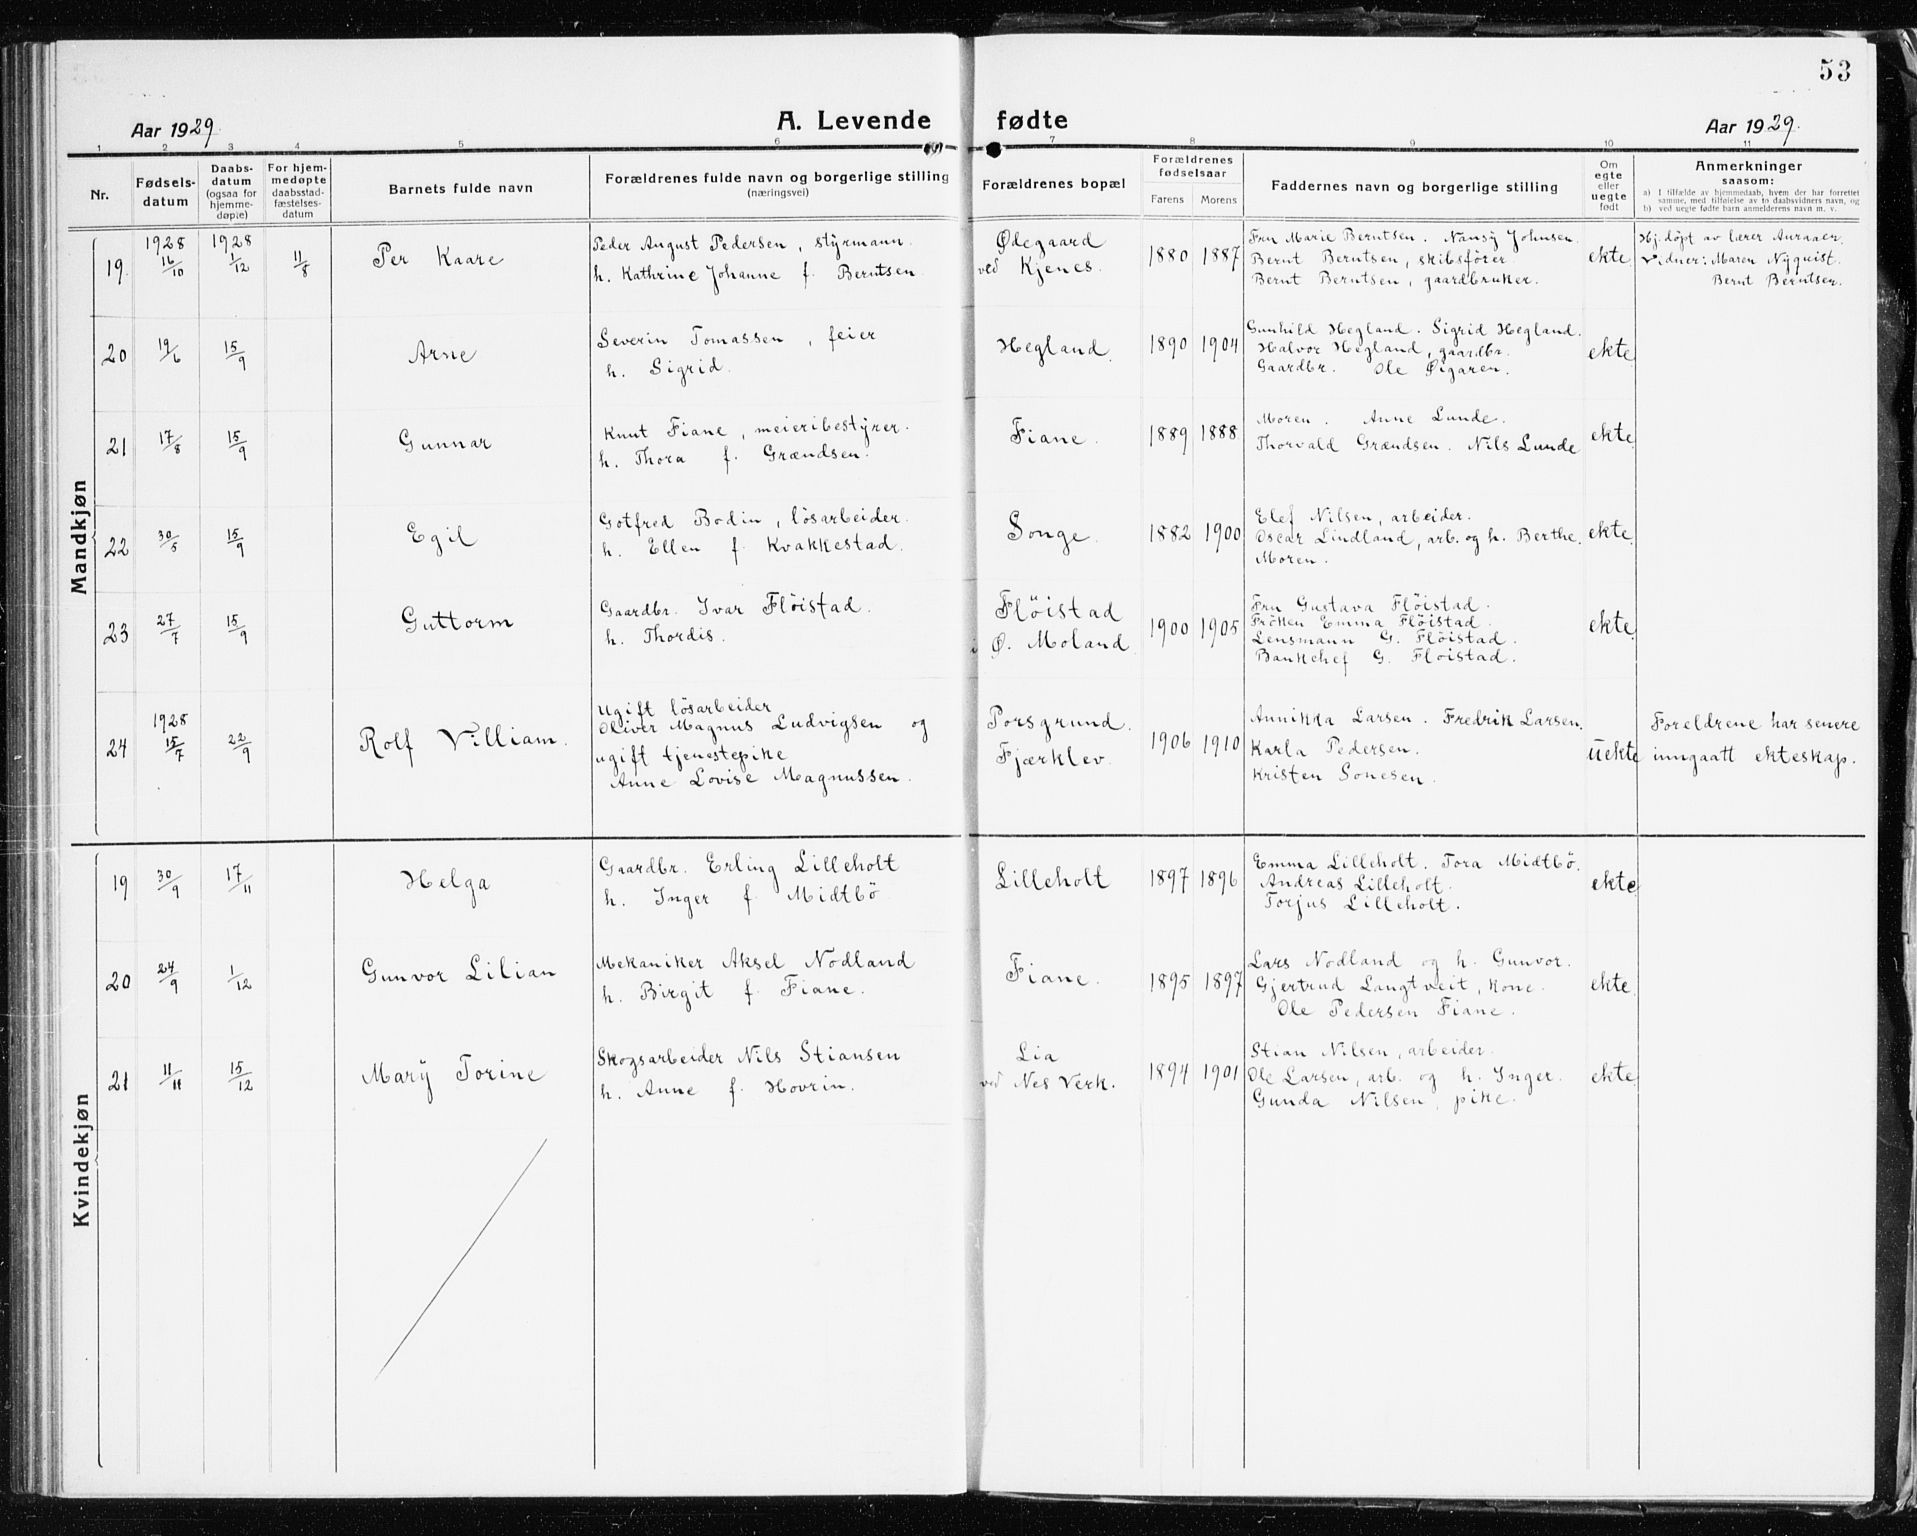 53
Aar 1929.
A. Levende fødte
Aar 1929.
1 2 3 4 5 6 7 8 9 10 11
Nr.
Fødsels-
datum
Daabs-
datum
(ogsaa for
hjemme-
døpte)
For hjem-
medøpte
daabsstad-
fæstelses-
datum
Barnets fulde navn
Forældrenes fulde navn og borgerlige stilling
(næringsvei)
Forældrenes bopæl
Forældrenes
fødselsaar
Farens Morens
Faddernes navn og borgerlige stilling
Om
egte
eller
uegte
født
Anmerkninger
saasom:
a) I tilfælde av hjemmedaab, hvem der har forrettet
samme, med tilføielse av to daabsvidners navn, og
b) ved uegte fødte barn anmelderens navn m. v.
Mandkjøn
19. 1928 16/10 1928 1/12 11/8 Per Kaare
Peder August Pedersen, styrmann.
h. Kathrine Johanne f. Berntsen
Ødegaard
ved Kjenes.
1880 1887
Fru Marie Berntsen. Nansy Johnsen.
Bernt Berntsen, skibsfører.
Bernt Berntsen, gaardbruker.
ekte.
Hj. døpt av lærer Auraaen.
Vidner: Maren Nyquist.
Bernt Berntsen.
20 19/6 15/9 Arne
Severin Tomassen, feier
h. Sigrid.
Hegland.
1890 1904
Gunhild Hegland. Sigrid Hegland.
Halvor Hegland, gaardbr.
Gaardbr. Ole Øigaren.
ekte.
21 17/8 15/9 Gunnar
Knut Fiane, meieribestyrer.
h. Thora f. Grændsen.
Fiane.
1889 1888
Moren. Anne Lunde.
Thorvald Grændsen. Nils Lunde
ekte.
22 30/5 15/9 Egil
Gotfred Bodin, lösarbeider.
h. Ellen f. Kvakkestad.
Songe.
1882 1900
Elef Nilsen, arbeider.
Oscar Lindland, arb. og h. Berthe.
Moren.
ekte.
23 27/7 15/9 Guttorm
Gaardbr. Ivar Flöistad.
h. Thordis.
Flöistad
i Ø. Moland.
1900 1905
Fru Gustava Flöistad.
Fröken Emma Flöistad.
Lensmann G. Flöistad.
Bankchef G. Flöistad.
ekte.
24 1928 15/7 22/9 Rolf Villiam.
Ugift lösarbeider
Oliver Magnus Ludvigsen og
ugift tjenestepike
Anne Lovise Magnussen.
Porsgrund.
Fjærklev.
1906 1910
Annikka Larsen. Fredrik Larsen.
Karla Pedersen.
Kristen Sonesen.
uekte
Foreldrene har senere
inngaatt ekteskap.
Kvindekjøn
19 30/9 17/11 Helga
Gaardbr. Erling Lilleholt
h. Inger f. Midtbö
Lilleholt
1897 1896
Emma Lilleholt. Tora Midtbö.
Andreas Lilleholt.
Torjus Lilleholt.
ekte
20 24/9 1/12 Gunvor Lilian
Mekaniker Aksel Nödland
h. Birgit f. Fiane.
Fiane.
1895 1897
Lars Nodland og h. Gunvor.
Gjertrud Langtveit, kone.
Ole Pedersen Fiane.
ekte.
21 11/11 15/12 Mary Torine
Skogsarbeider Nils Stiansen
h. Anne f. Hovrin.
Lia
ved Nes Verk.
1894 1901
Stian Nilsen, arbeider.
Ole Larsen, arb. og h. Inger.
Gunda Nilsen, pike.
ekte